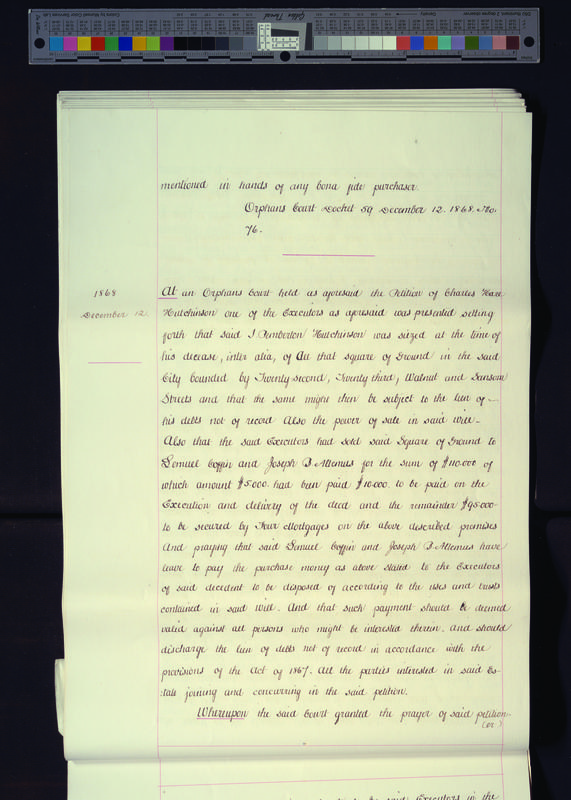 mentioned in hands of any bona fide purchaser.
Orphans Court Docket 59 December 12. 1868. No.
76.
1868
December 12.
At an Orphans Court held as aforesaid the Petition of Charles Hare
Hutchinson one of the Executors as aforesaid was presented setting
forth that said I Pemberton Hutchinson was seized at the time of
his decease, inter alia, of All that square of Ground in the said
City bounded by Twenty-second, Twenty third, Walnut and Sansom
Streets and that the same might then be subject to the lien of
his debts not of record Also the power of sale in said will.
Also that the said Executors had sold said Square of Ground to
Lemuel Coffin and Joseph B Altemus for the sum of $110.000 of
which amount $5.000. had been paid $10.000. to be paid on the
Execution and delivery of the deed and the remainder $95.000
to be secured by Four Mortgages on the above described premises
And praying that said Lemuel Coffin and Joseph B Altemus have
leave to pay the purchase money as above stated to the Executors
of said decedent to be disposed of according to the uses and trusts
contained in said will. And that such payment should be deemed
valid against all persons who might be interested therein. And should
discharge the lien of debts not of record in accordance with the
provisions of the Act of 1867. All the parties interested in said Es-
tate joining and concurring in the said petition.
Whereupon the said Court granted the prayer of said petition.
said Executors in the